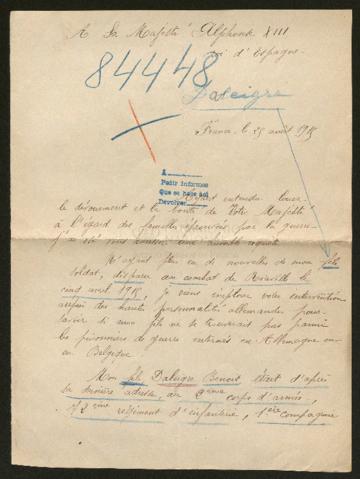 A Sa Majesté Alphonse XIII
roi d'Espagne
84448
Daleigre
France, le 25 août 1915
A
Pedir informes
Que se hace así
Devolver
Ayant entendu louer
le dévouement et la bonté de Votre Majesté
à l'égard des familles éprouvées par la guerre
j'ai
une humble requête
N'ayant plus eu de nouvelles de mon fils
soldat, disparu au combat de Riaville le
cinq avril 1915, je viens implorer votre intervention
auprès des hautes personnalités allemandes pour
savoir si mon fils ne se trouverait pas parmi
les prisonniers de guerre internés en Allemagne ou
en Belgique
Mon fils Daleigre Benoit était d'après
sa dernière adresse, au 2ème corps d'armée,
ème régiment d'infanterie, 1ère compagnie